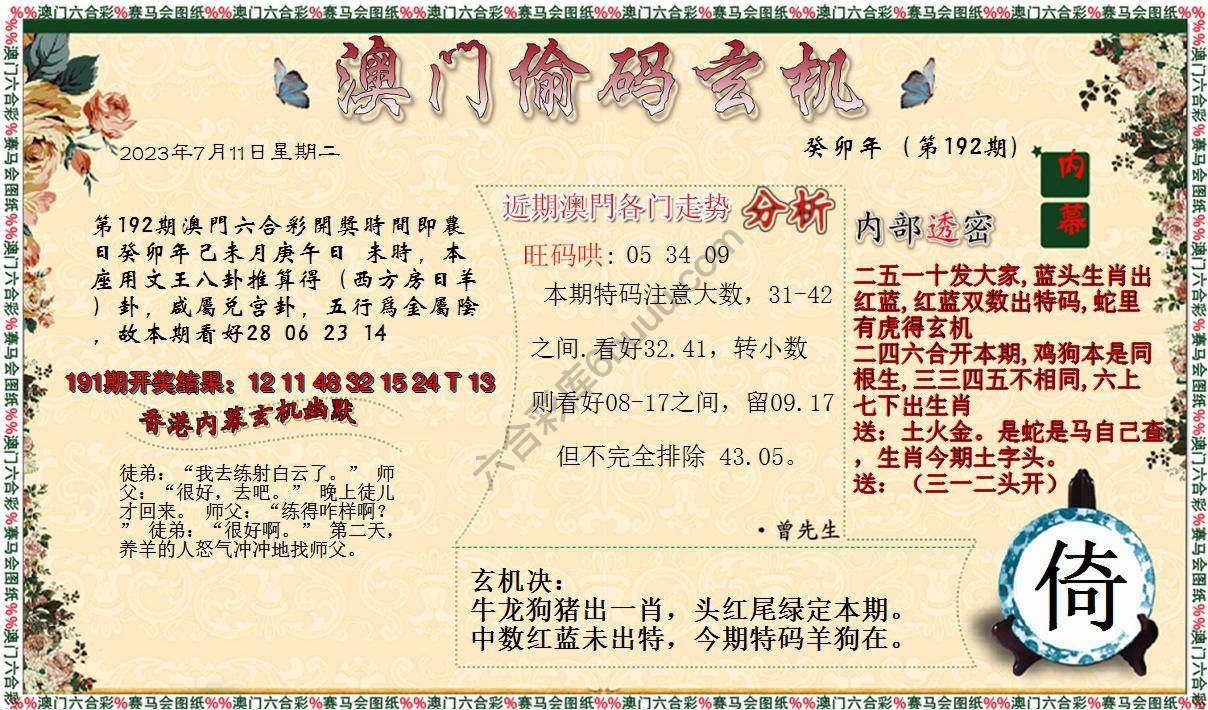 %%澳门六合彩%赛马会图纸%%澳门六合彩%赛马会图纸%%澳门六合彩%赛马会图纸%%澳门六合彩%赛马会图纸%%澳门六合彩%赛马会图纸%%澳门六合彩%赛马会图纸
澳门偷码玄机
2023年7月11日星期二
癸卯年（第192期）
内
幕
第192期澳門六合彩開獎時間即農
日癸卯年己未月庚午日 未時，本
座用文王八卦推算得（西方房日羊
）卦，咸屬兑宫卦，五行爲金屬陰
，故本期看好28 06 23 14
191期开奖结果：12 11 48 32 15 24 T 13
香港内幕玄机幽默
徒弟：“我去练射白云了。” 师
父：“很好，去吧。” 晚上徒儿
才回来。 师父：“练得咋样啊？
” 徒弟：“很好啊。” 第二天，
养羊的人怒气冲冲地找师父。
近期澳門各门走势 分析
旺码哄: 05 34 09
本期特码注意大数，31-42
之间.看好32.41，转小数
则看好08-17之间，留09.17
但不完全排除 43.05。
·曾先生
内部透密
二五一十发大家,蓝头生肖出
红蓝,红蓝双数出特码,蛇里
有虎得玄机
二四六合开本期,鸡狗本是同
根生,三三四五不相同,六上
七下出生肖
送：土火金。是蛇是马自己查
，生肖今期土字头。
送：（三一二头开）
玄机决：
牛龙狗猪出一肖，头红尾绿定本期。
中数红蓝未出特，今期特码羊狗在。
倚
%%澳门六合彩%赛马会图纸%%澳门六合彩%赛马会图纸%%澳门六合彩%赛马会图纸%%澳门六合彩%赛马会图纸%%澳门六合彩%赛马会图纸%%澳门六合彩%赛马会图纸